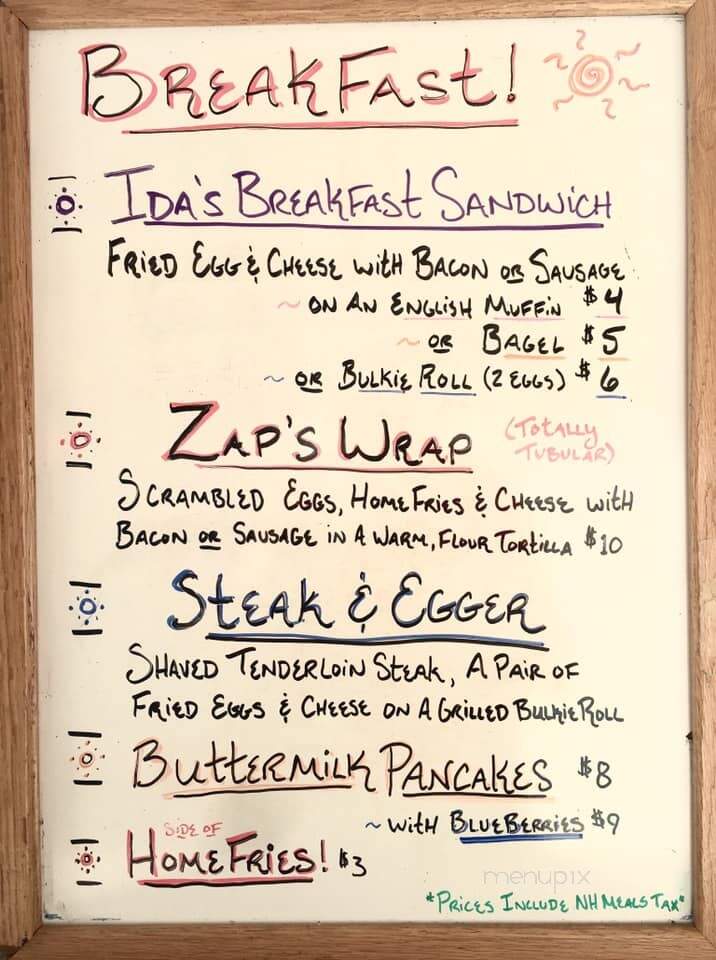 BREAKFAST!
IDA'S BREAKFAST SANDWICH
FRIED EGG & CHEESE WITH BACON OR SAUSAGE
~ ON AN ENGLISH MUFFIN $4
~ OR BAGEL $5
~ OR BULKIE ROLL (2 EGGS) $6
ZAP'S WRAP (TOTALLY
TUBULAR)
SCRAMBLED EGGS, HOMEFRIES & CHEESE WITH
BACON OR SAUSAGE IN A WARM, FLOUR TORTILLA $10
STEAK & EGGER
SHAVED TENDERLOIN STEAK, A PAIR OF
FRIED EGGS & CHEESE ON A GRILLED BULKIE ROLL
BUTTERMILK PANCAKES $8
~ WITH BLUEBERRIES $9
SIDE OF
HOMEFRIES! $3
menupix
*PRICES INCLUDE NH MEALS TAX*